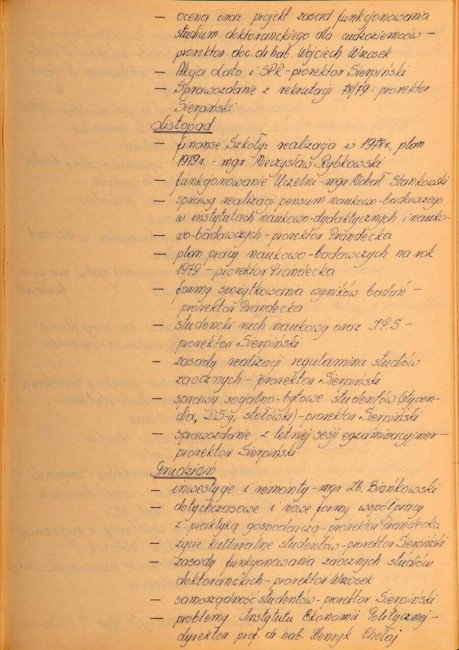 – ocena oraz projekt zasad funkcjonowania
studium doktoranckiego dla cudzoziemców –
prorektor doc. dr hab. Wojciech Wrzosek
– Akcja Lato i SPR – prorektor Sierpiński
– Sprawozdanie z rekrutacji 78/79 – prorektor
Sierpiński
Listopad
– finanse Szkoły: realizacja w 1978r., plan
1979r. – mgr Mieczysław Rybkowski
– funkcjonowanie Uczelni – mgr Michał Stankowski
– sprawy realizacji pensum naukowo-badawczego
w instytutach naukowo-dydaktycznych i nauko-
wo-badawczych – prorektor Prandecka
– plan pracy naukowo-badawczych na rok
1979 – prorektor Prandecka
– formy spożytkowania wyników badań –
prorektor Prandecka
– studencki ruch naukowy oraz
prorektor Sierpiński
– zasady realizacji regulaminu studiów
zaocznych – prorektor Sierpiński
– sprawy socjalno-bytowe studentów (stypen-
dia, DS-y, stołówki) – prorektor Sierpiński
– sprawozdanie z letniej sesji egzaminacyjnej –
prorektor Sierpiński
Grudzień
– inwestycje i remonty – mgr Zb. Bieńkowski
– dotychczasowe i nowe formy współpracy
z praktyką gospodarczą – prorektor Prandecka
– życie kulturalne studentów – prorektor Sierpiński
– zasady funkcjonowania zaocznych studiów
doktoranckich – prorektor Wrzosek
– samorządność studentów – prorektor Sierpiński
– problemy Instytutu Ekonomii Politycznej –
dyrektor prof. dr hab. Henryk Chołaj